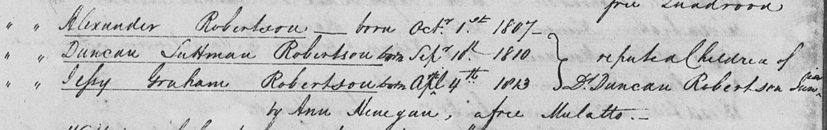 free Quadroon
" " Alexander Robertson born Octr. 1st. 1807
" " Duncan Robertson born Sepr. 1st. 1810
" " Jessy Graham Robertson born Apl. 4th. 1813 } reputed Children of Dr. Duncan Robertson
by Ann Henegan, a free Mulatto.